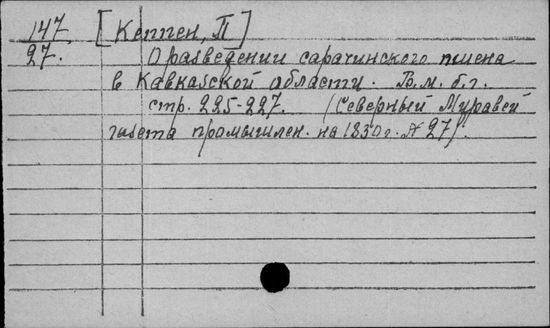 147. [Кеппен, П]
27. О разведении сарачинского пшена
в Кавказской области. Б.м. б.г.
стр. 225-227. (Северный Муравей
газета промышлен. на 1830 г. № 27).